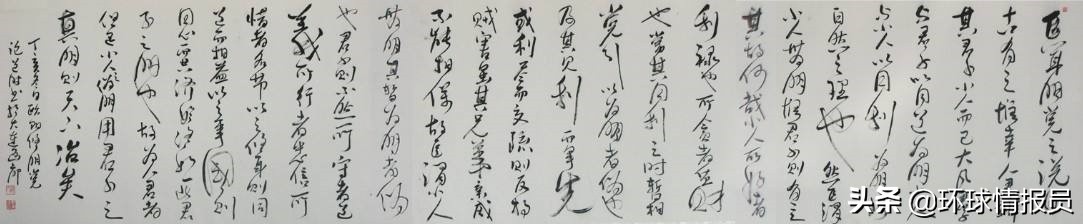 臣聞朋党之說
古有之惟幸人
其君子小人而已大凡
与君子以同道为朋
与小人以同利为朋
自然之理也然臣謂
小人無朋惟君子則有之
其故何哉小人所好者
利禄也所貪者貨財
也當其同利之時暫相
党引以为朋者偽也
及其見利而争先
或利盡而交疏則反相
賊害雖其兄弟親戚
不能相保故臣謂小人
無朋其暫为朋者偽
也君子則不然所守者道
義所行者忠信所
惜者名節以之修身則同
道而相益以之事國則
同心而共濟終始如一此君
子之朋也故为人君者
但退小人偽朋用君子之
真朋則天下治矣
丁亥冬日欧阳修朋党
论 书於大連
头条 @环球情报员